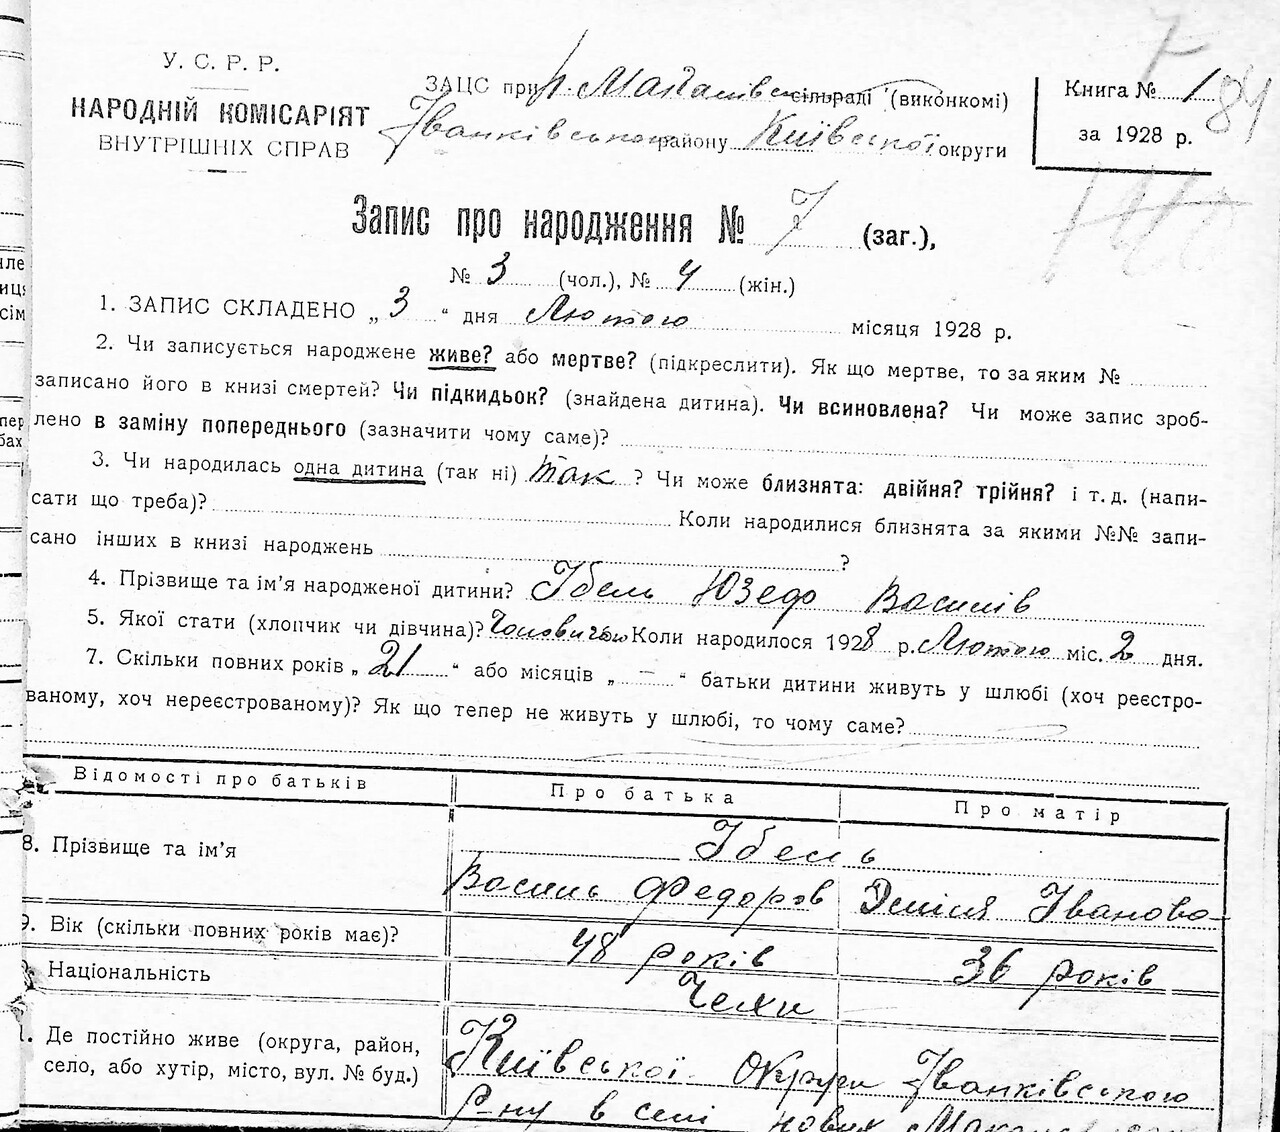 7
84
У. С. Р. Р.
НАРОДНІЙ КОМІСАРІЯТ
ВНУТРІШНІХ СПРАВ
ЗАЦС при сільраді (виконкомі)
Іванківського району Київської округи
Книга № 1
за 1928 р.
Запис про народження № 7 (заг.),
№ 3 (чол.), № 4 (жін.)
1. ЗАПИС СКЛАДЕНО „ 3 “ дня Лютого місяця 1928 р.
2. Чи записується народжене живе? або мертве? (підкреслити). Як що мертве, то за яким №
записано його в книзі смертей? Чи підкидьок? (знайдена дитина). Чи всиновлена? Чи може запис зроб-
лено в заміну попереднього (зазначити чому саме)?
3. Чи народилась одна дитина (так ні) так ? Чи може близнята: двійня? трійня? і т. д. (напи-
сати що треба)? Коли народилися близнята за якими №№ запи-
сано інших в книзі народжень ?
4. Прізвище та ім’я народженої дитини? Ібель Юзеф Василів
5. Якої стати (хлопчик чи дівчина)? Чоловічою Коли народилося 1928 р. Лютого міс. 2 дня.
7. Скільки повних років „ 21 “ або місяців „ — “ батьки дитини живуть у шлюбі (хоч реєстро-
ваному, хоч нереєстрованому)? Як що тепер не живуть у шлюбі, то чому саме?
Відомості про батьків
Про батька
Про матір
8. Прізвище та ім’я
Ібель
Василь Федоров
Іванова
9. Вік (скільки повних років має)?
48 років
36 років
Національність
Чехи
Де постійно живе (округа, район,
село, або хутір, місто, вул. № буд.)
Київської округи Іванківського
р-ну в селі нових